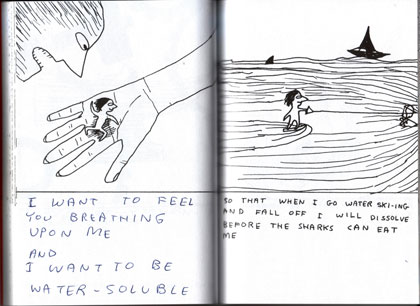 I WANT TO FEEL
YOU BREATHING
UPON ME
AND
I WANT TO BE
WATER-SOLUBLE
SO THAT WHEN I GO WATER SKI-ING
AND FALL OFF I WILL DISSOLVE
BEFORE THE SHARKS CAN EAT
ME